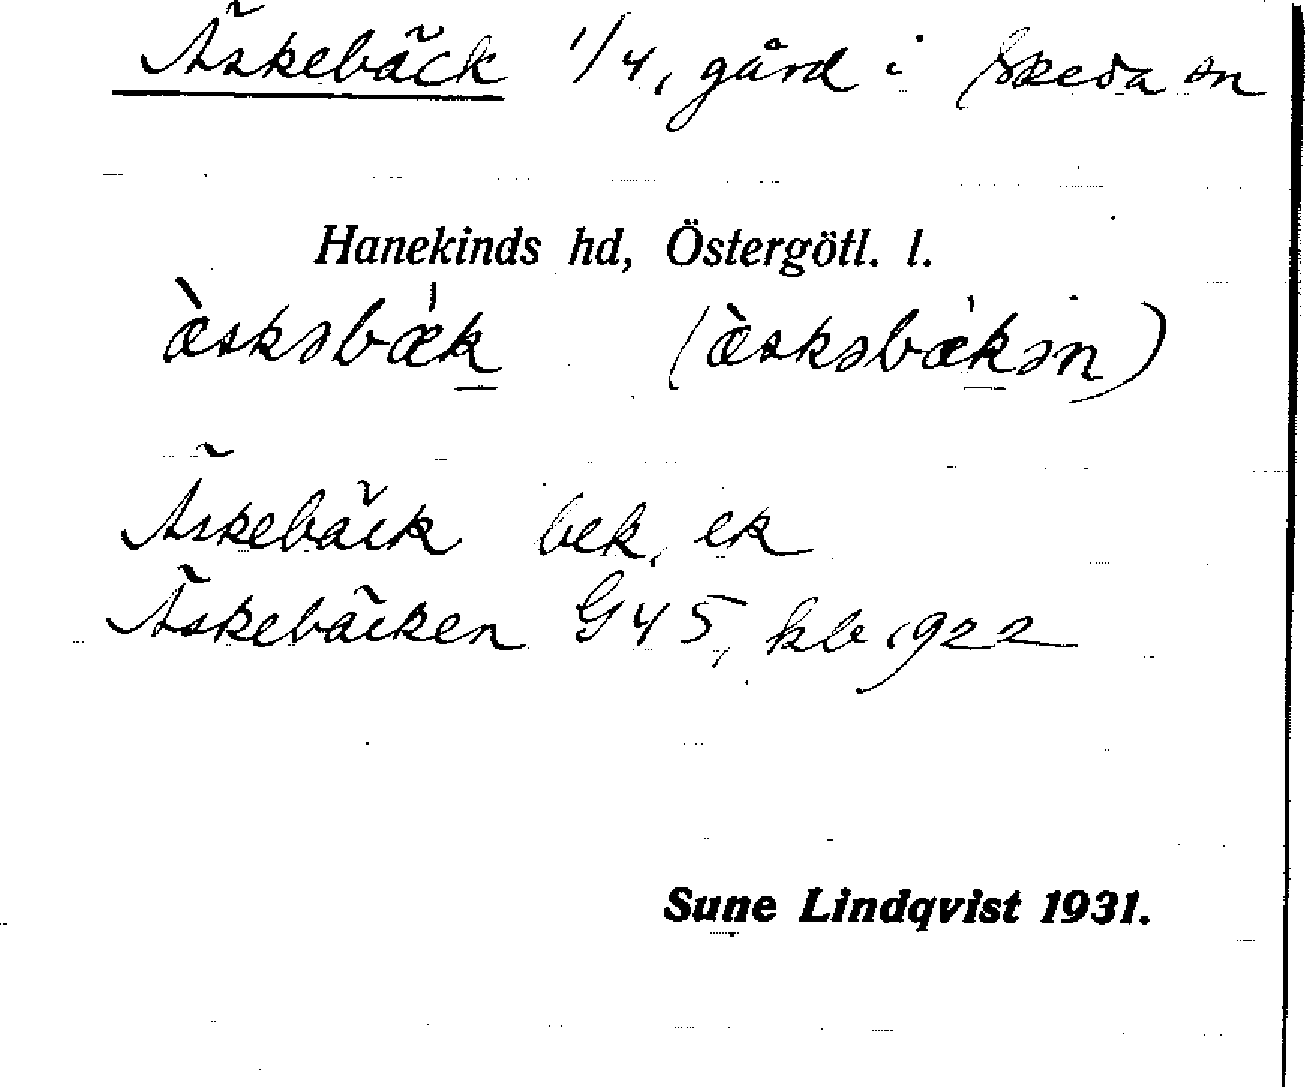 Äskebäck 1/4, gård i Skeda sn
Hanekinds hd, Östergötl. l.
æ̀skəbæ̍k (æ̀skəbæ̍kən)
Äskebäck bek, ek
Äskebäcken G45, kb 1922
Sune Lindqvist 1931.